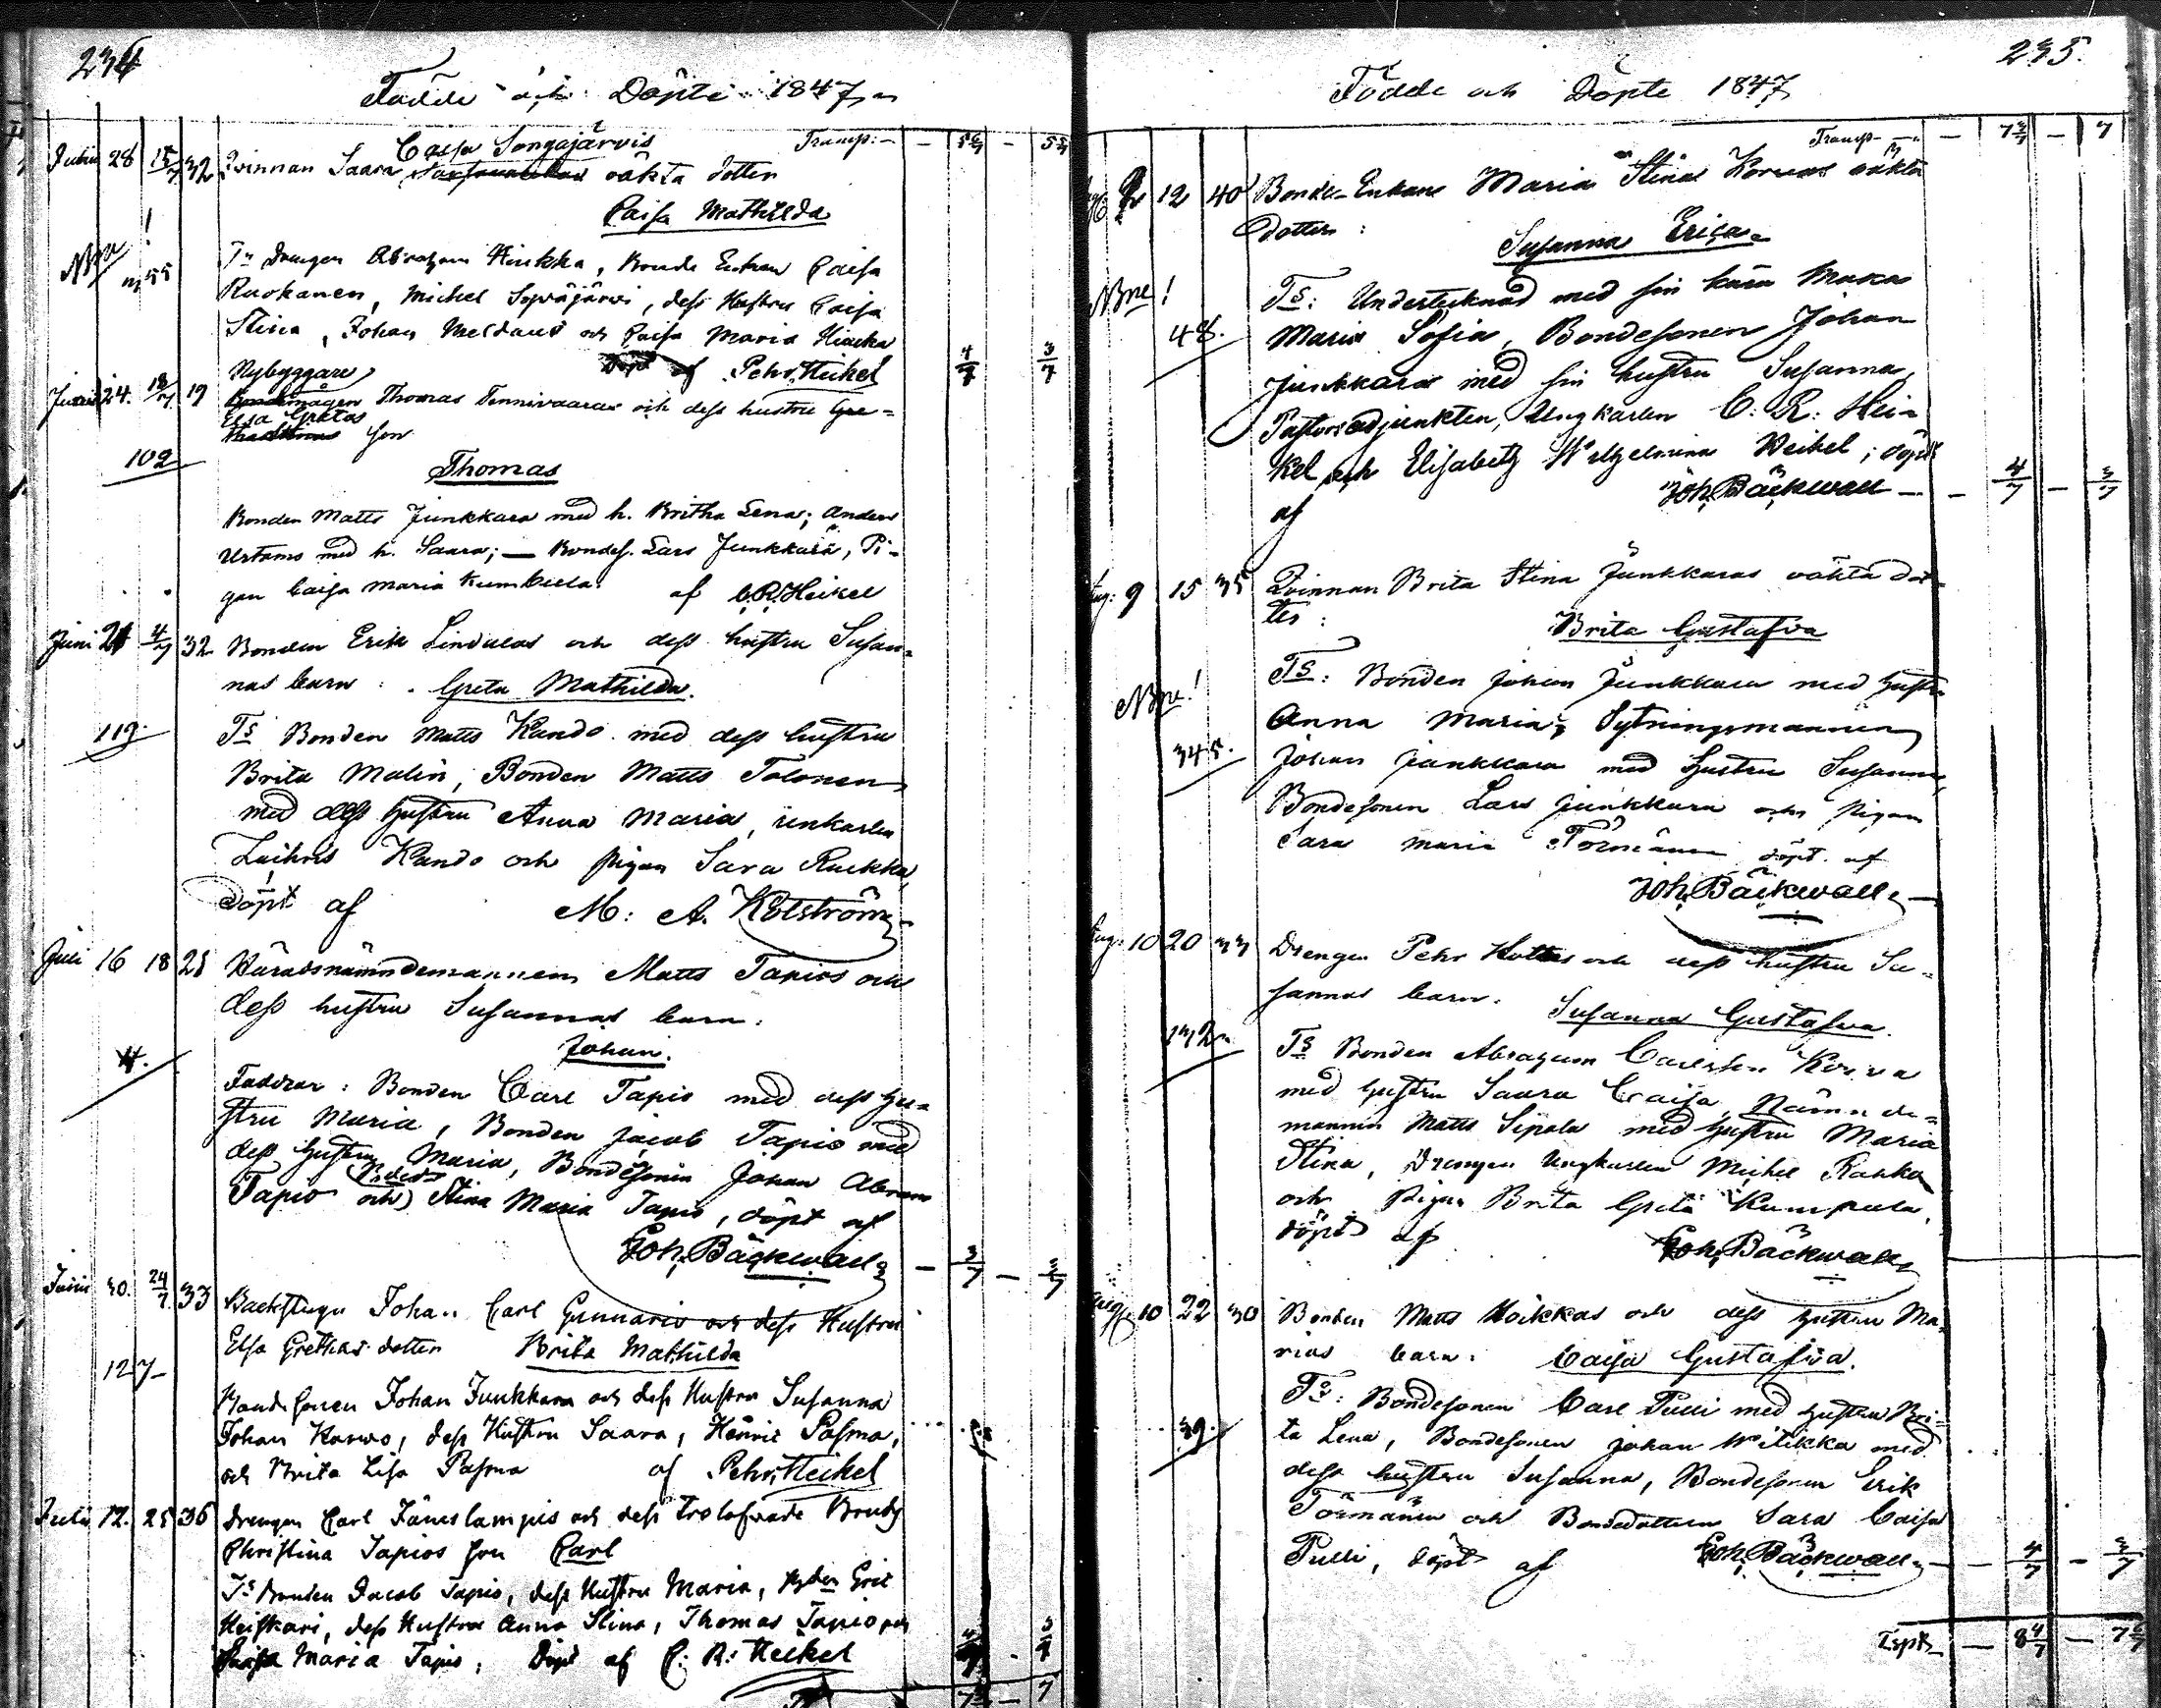 234
Födde och Döpte 1847
Transp:
Caisa Songajärvis
Julii 28 15/7 32 Qvinnan Saara oäkta dotter
Caisa Mathilda
Ts Drengen Abraham Hiukka, Bonde Enkan Caisa
55
Ruokanen, Michel Sopväjärvi, dess Hustru Caisa
Stina, Johan Meldaus och Caisa Maria Hiucka
Döpt af Pehr Heikel
Nybyggare
Junii 24. 18/7 19 Thomas Tennivaaras och dess hustru Gre=
Elsa Gretas
son
102
Thomas
Bonden Matts Junkkara med h. Britha Lena; Anders
Urtams med h. Saara; — Bondes. Lars Junkkara, Pi-
gan Caisa Maria Kumbula. af C.R. Heikel
Juni 21 4/7 32 Bonden Erik Lindulas och dess hustru Susan=
nas barn: Greta Mathilda.
119.
Ts Bonden Matts Kando med dess hustru
Brita Malin, Bonden Matts Tolonen
med dess hustru Anna Maria, unkarlen
Kando och pigan Sara Ruckka,
döpt af M: A. Kolström
Juli 16 18 28 Häradsnämndemannen Matts Tapios och
dess hustru Susannas barn:
Johan.
4.
Faddrar: Bonden Carl Tapio med dess hu=
stru Maria, Bonden Jacob Tapio med
dess hustru Maria, Bondesonen Johan Abram
Tapio och Stina Maria Tapio, döpt af
Joh. Bäckwall
3/7 — 3/7
Junii 30. 24/7. 33 Backstugu Johan Carl Gunnaris och dess Hustru
Elsa Grethas dotter Brita Mathilda
127
Bondesonen Johan Junkkara och dess Hustru Susanna
Johan Karwo, dess Hustru Saara, Henric Pasma,
och Brita Lisa Pasma af Pehr Heikel
Julii 12. 25 36 Drengen Carl Jäneslampis och dess trolofvade Brud
Christina Tapios son Carl
Ts Bonden Jacob Tapio, dess Hustru Maria, Bden Eric
Heiskari, dess Hustru Anna Stina, Thomas Tapio och
Caisa Maria Tapio, Döpt af C: R: Heikel
235.
Födde och Döpte 1847
Transp
12 40 Bonde-Enkans Maria Stina Korvas oäkta
dotter:
Susanna Erica
Ts: Undertecknad med sin kära Maka
48.
Maria Sofia, Bondesonen Johan
Junkkara med sin hustru Susanna,
Pastorsadjunkten, Ungkarlen C: R: Hei-
kel och Elisabeth Wilhelmina Heikel; döpt
af Joh. Bäckwall
4/7 — 3/7
Aug: 9 15 35 Qvinnan Brita Stina Junkkaras oäkta dot-
ter:
Brita Gustafva
Ts: Bonden Johan Junkkara med hustru
Anna Maria; Sytningsmannen
345.
Johan Junkkara med hustru Susanna,
Bondesonen Lars Junkkara och pigan
Sara Maria Törmänen döpt af
Joh. Bäckwall
Aug: 10 20 33 Drengen Pehr Hottas och dess hustru Su=
sannas barn: Susanna Gustafva.
132
Ts Bonden Abraham Carlsson Korva
med hustru Saara Caisa, Nämnde=
mannen Matts Sipola med hustru Maria
Stina, Drengen Ungkarlen Michel Rahka
och pigan Brita Greta Kumpula,
döpt af Joh. Bäckwall
Aug 10 22 30 Bonden Matts Hoikkas och dess hustru Ma=
rias barn: Caisa Gustafva.
Ts: Bondesonen Carl Pulli med hustru Bri=
39.
ta Lena, Bondesonen Johan Witikka med
dess hustru Susanna, Bondesonen Erik
Törmänen och Bondedottern Sara Caisa
Pulli, döpt af Joh. Bäckwall
4/7 — 3/7
Tspt
8 4/7